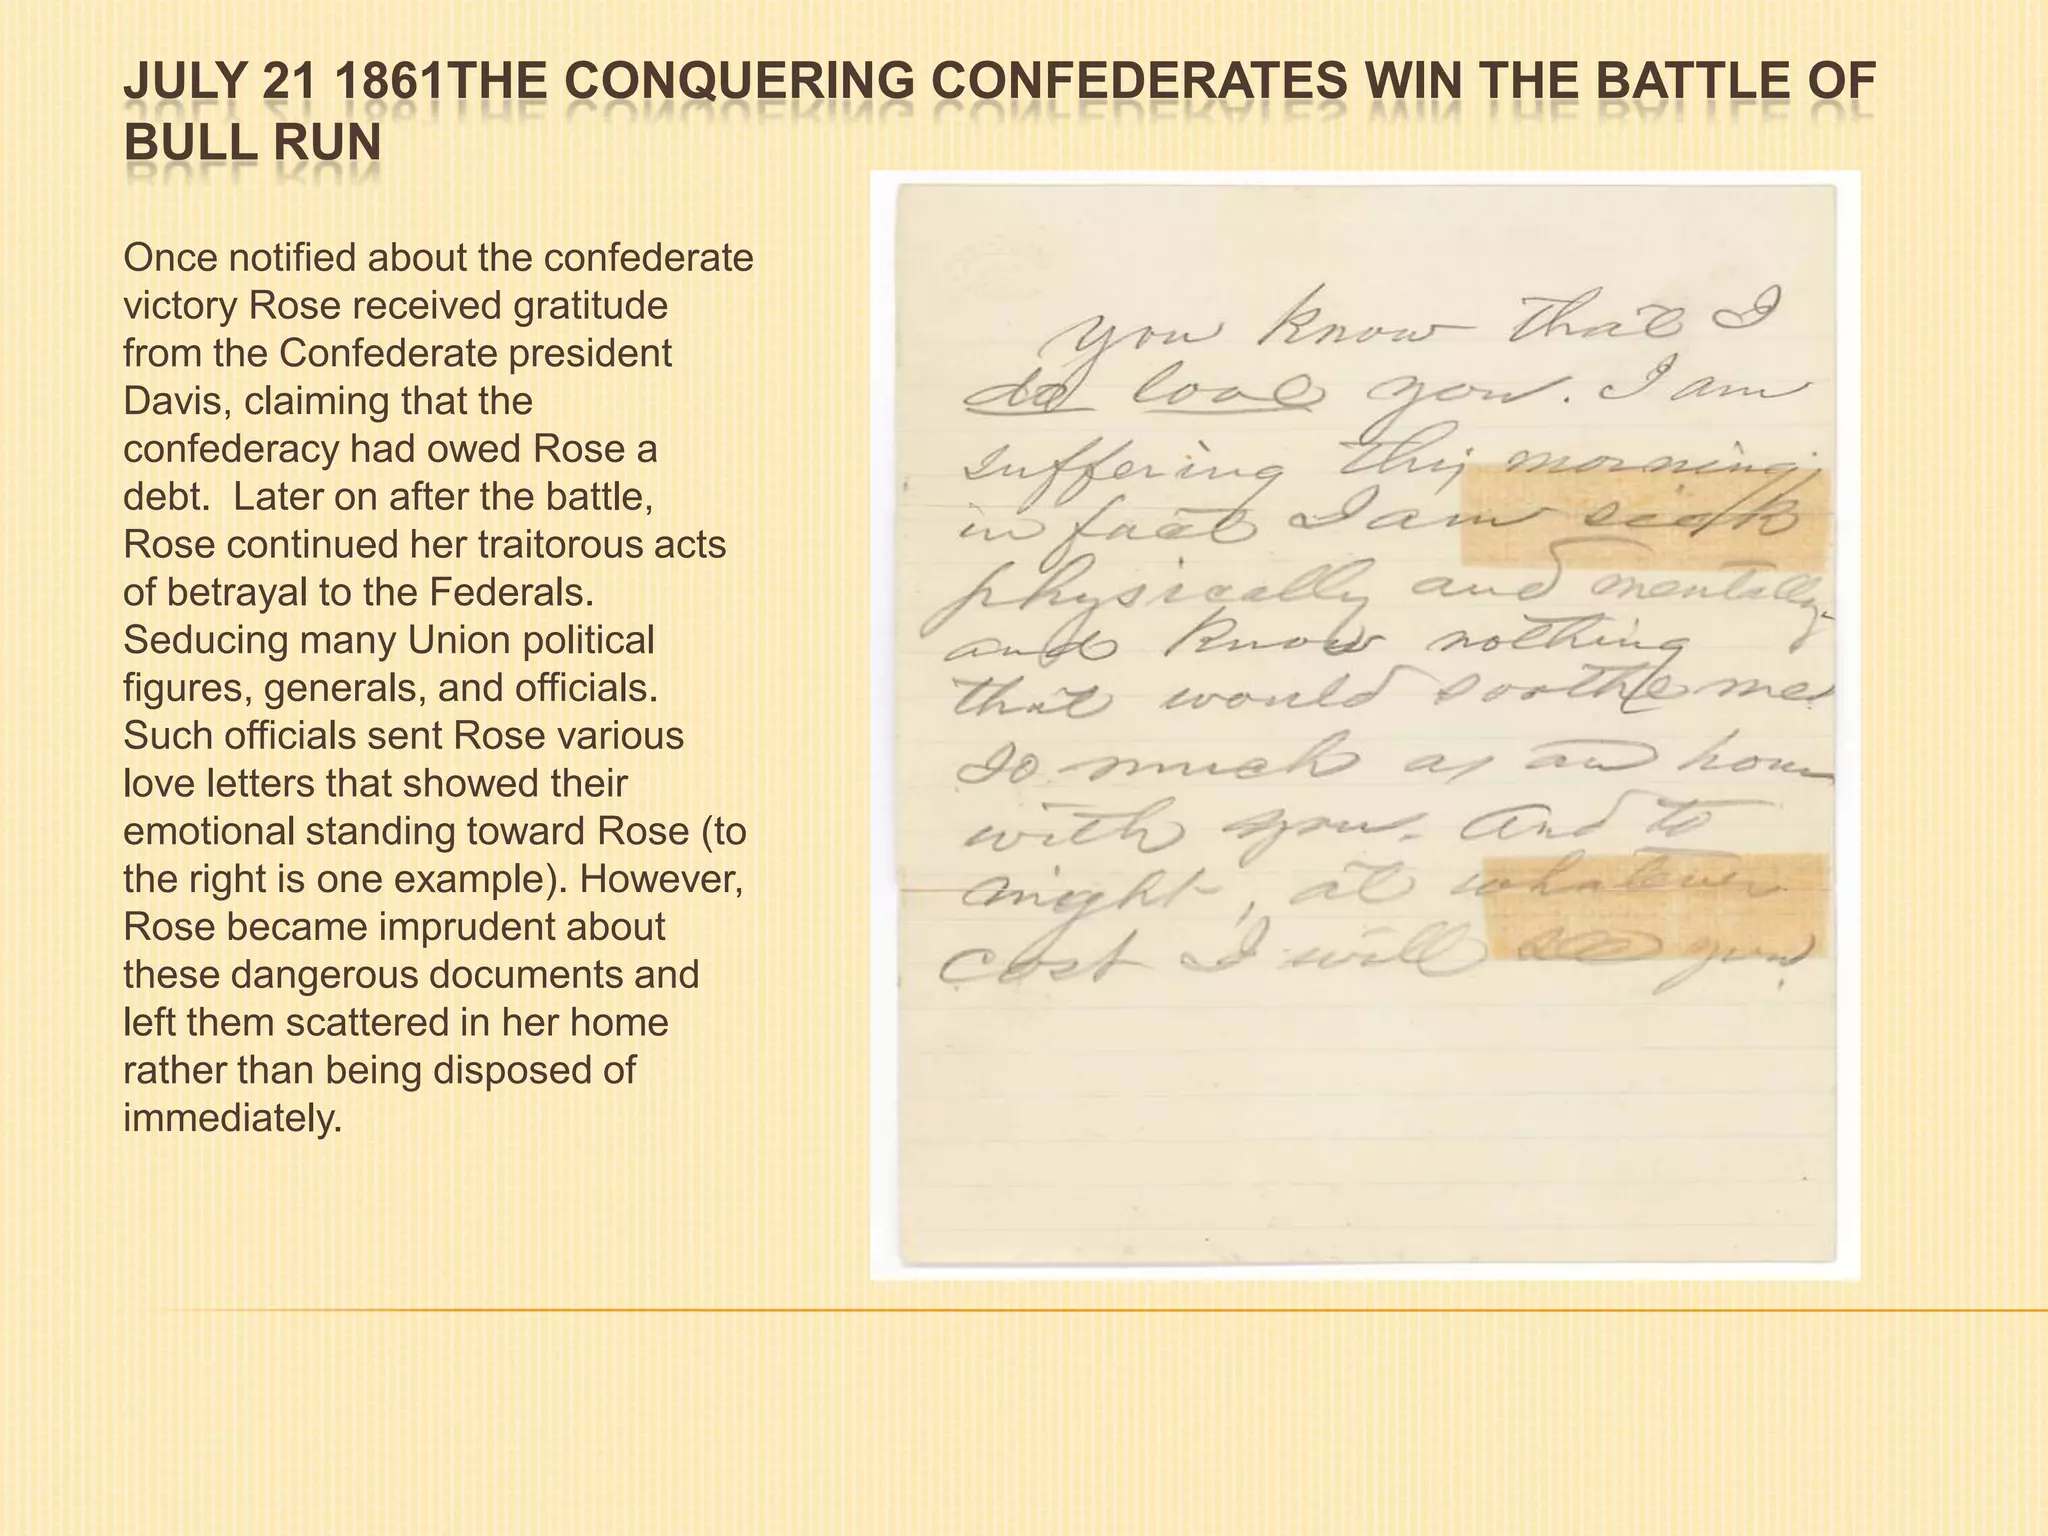 JULY 21 1861THE CONQUERING CONFEDERATES WIN THE BATTLE OF
BULL RUN
Once notified about the confederate
victory Rose received gratitude
from the Confederate president
Davis, claiming that the
confederacy had owed Rose a
debt.  Later on after the battle,
Rose continued her traitorous acts
of betrayal to the Federals.
Seducing many Union political
figures, generals, and officials.
Such officials sent Rose various
love letters that showed their
emotional standing toward Rose (to
the right is one example). However,
Rose became imprudent about
these dangerous documents and
left them scattered in her home
rather than being disposed of
immediately.
You know that I
do love you. I am
suffering this morning,
in fact I am sick
physically and mentally
and know nothing
that would soothe me
so much as an hour
with you. And to
night, at whatever
cost I will see you.